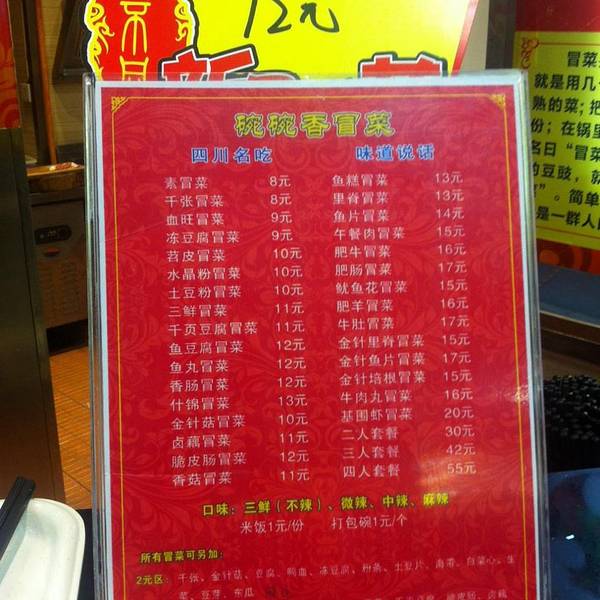 12元
碗碗香冒菜
四川名吃 味道说话
素冒菜 8元
千张冒菜 8元
血旺冒菜 9元
冻豆腐冒菜 9元
苕皮冒菜 10元
水晶粉冒菜 10元
土豆粉冒菜 10元
三鲜冒菜 11元
千页豆腐冒菜 11元
鱼豆腐冒菜 12元
鱼丸冒菜 12元
香肠冒菜 12元
什锦冒菜 13元
金针菇冒菜 10元
卤藕冒菜 11元
脆皮肠冒菜 12元
香菇冒菜 11元
鱼糕冒菜 13元
里脊冒菜 13元
鱼片冒菜 14元
午餐肉冒菜 15元
肥牛冒菜 16元
肥肠冒菜 17元
鱿鱼花冒菜 15元
肥羊冒菜 16元
牛肚冒菜 17元
金针里脊冒菜 15元
金针鱼片冒菜 17元
金针培根冒菜 15元
牛肉丸冒菜 16元
基围虾冒菜 20元
二人套餐 30元
三人套餐 42元
四人套餐 55元
口味：三鲜（不辣）、微辣、中辣、麻辣
米饭1元/份 打包碗1元/个
所有冒菜可另加：
2元区：千张、金针菇、豆腐、鸭血、冻豆腐、粉条、土豆片、海带、白菜心、生
菜、豆芽、冬瓜
脆皮肠、卤藕
冒菜
就是用几
熟的菜；把
份；在锅里
名曰“冒菜
的豆豉，
”。简单
是一群人